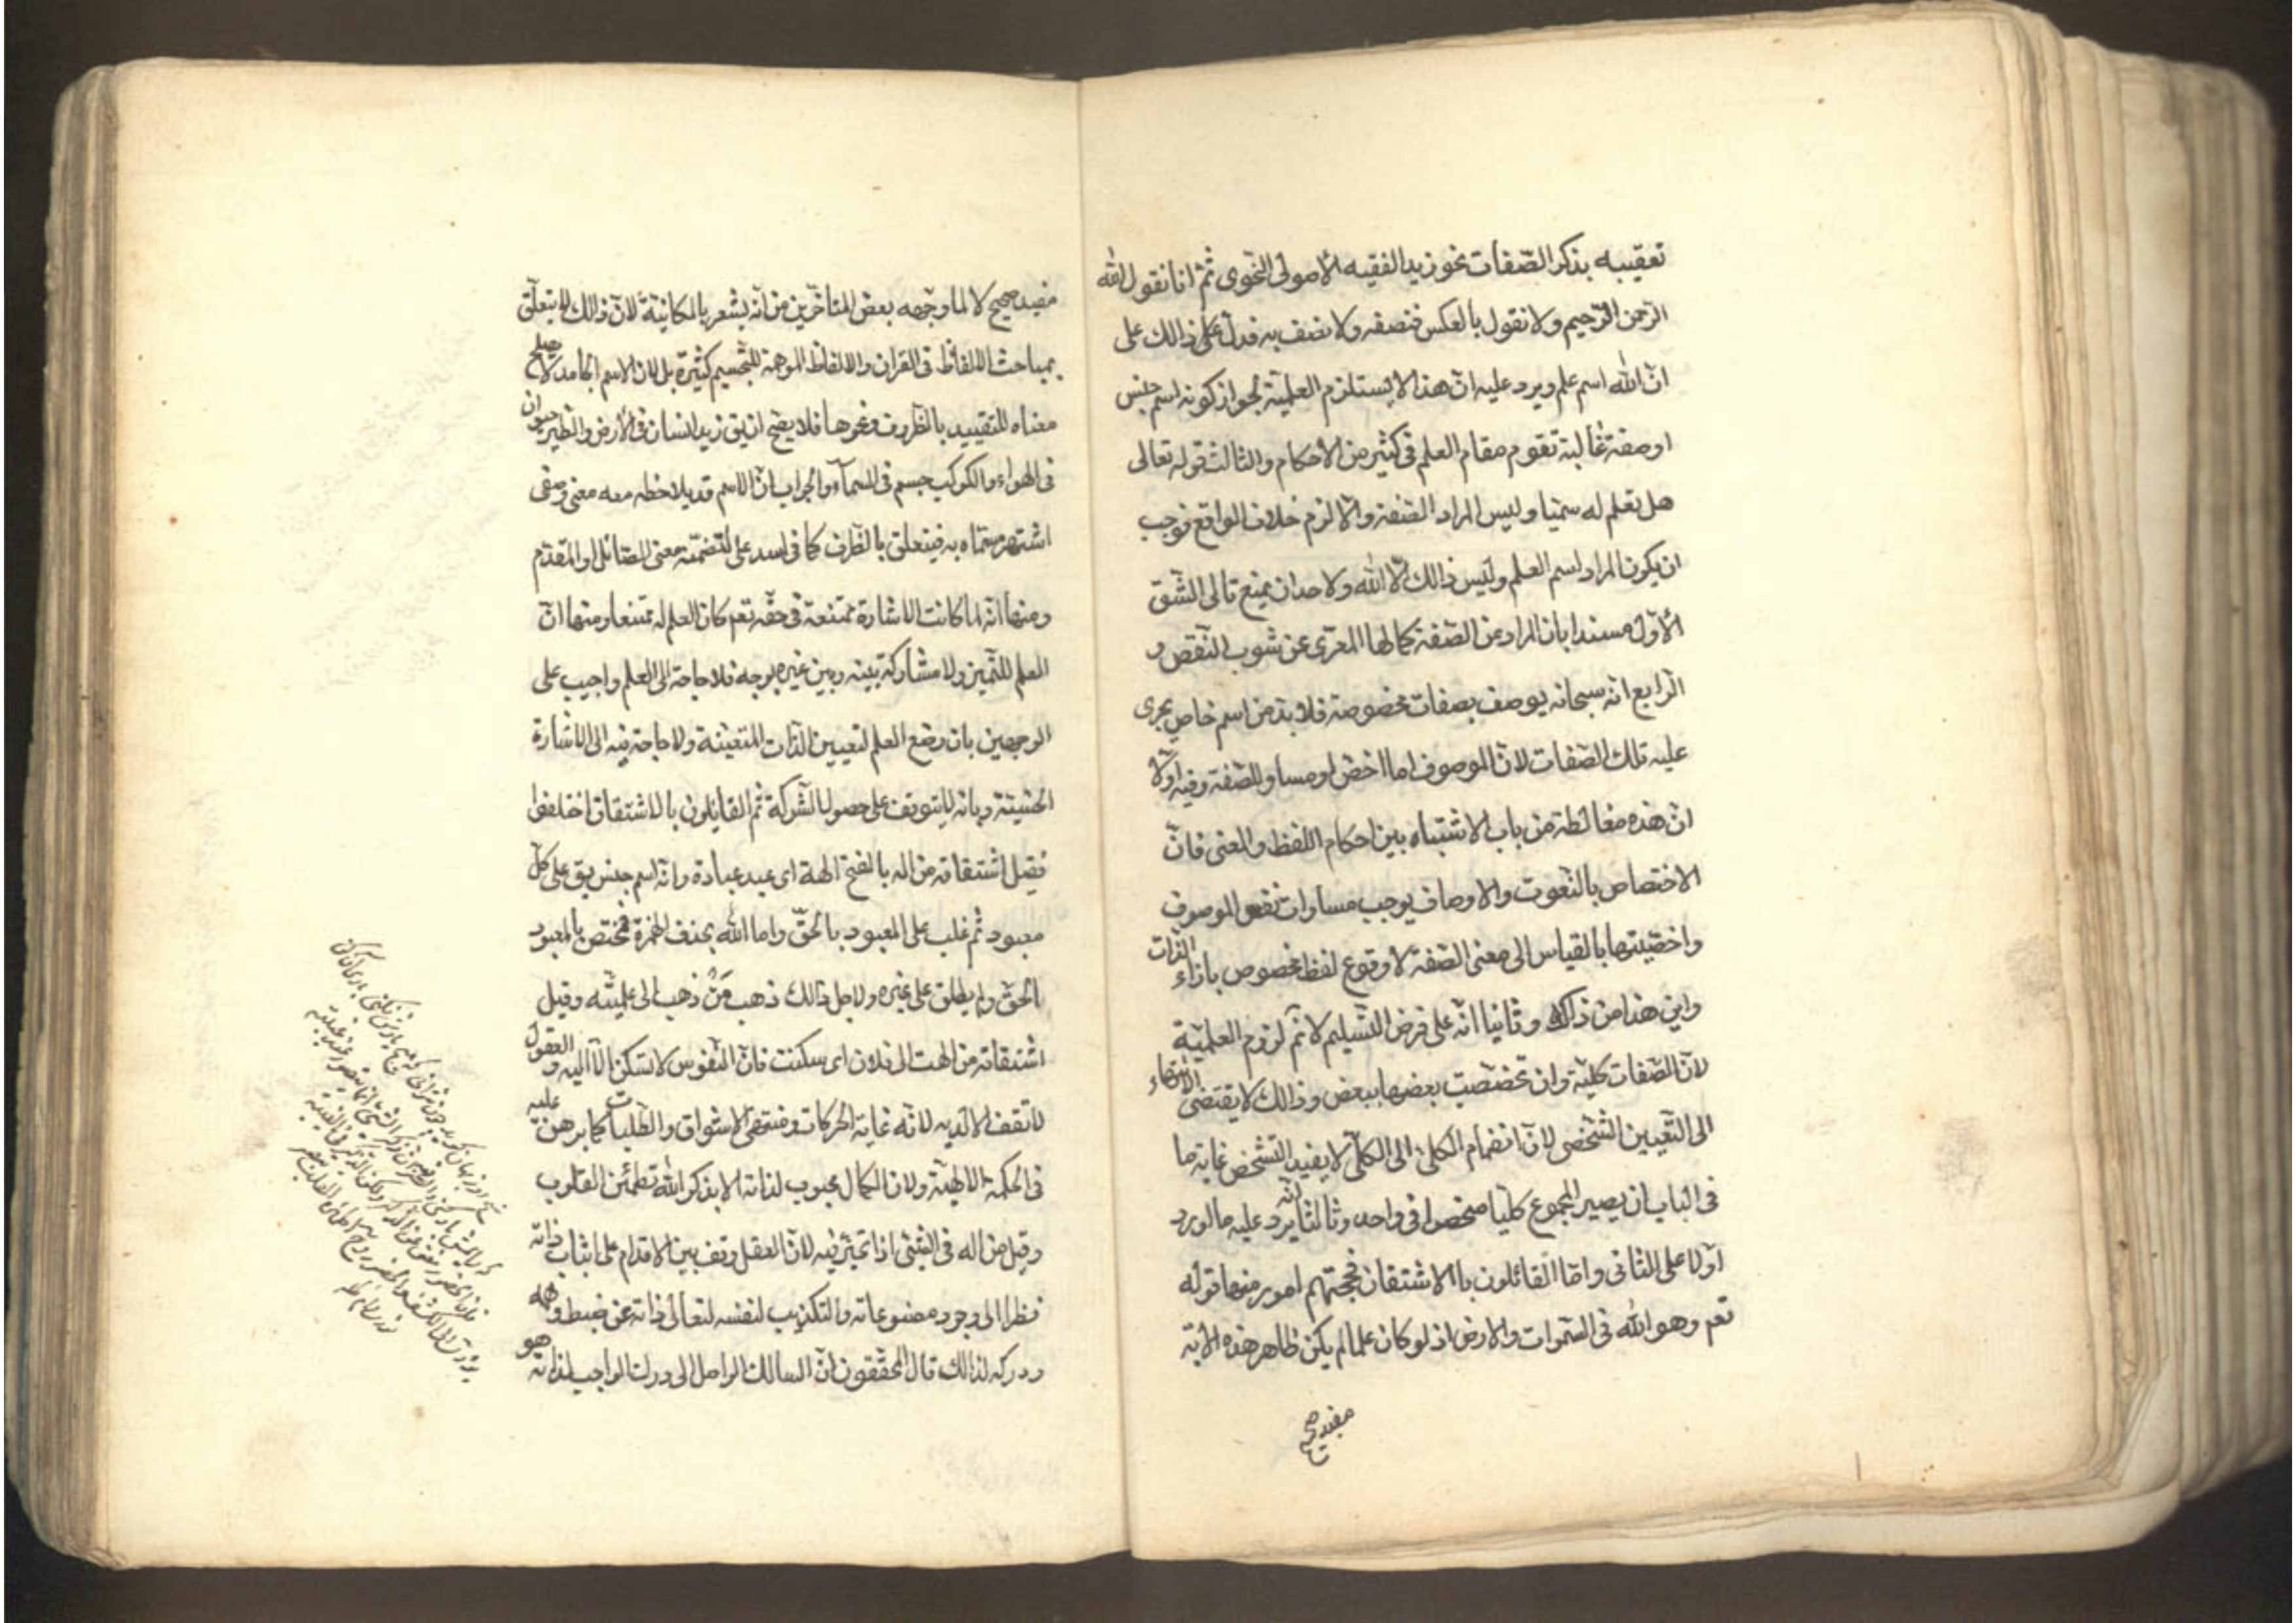 تعقيبه بذكر الصّفات نحو زيد الفقيه الأصولى النّحوى ثمّ انا نقول الله
الرّحمن الرّحيم ولا نقول بالعكس فنصفه ولا نصف به فدلّ على ذالك على
انّ الله اسم علم ويرد عليه انّ هذا لا يستلزم العلميّة لجواز كونه اسم جنس
او صفة غالبة تقوم مقام العلم فى كثير من الأحكام والثالث قوله تعالى
هل تعلم له سميّا وليس المراد الصّفة والّا لزم خلاف الواقع فوجب
ان يكون المراد اسم العلم وليس ذالك الّا الله ولاحد ان يمنع تالى الشّق
الأوّل مسندا بانّ المراد من الصّفة كمالها المعرّى عن شوب النّقص و
الرّابع انّه سبحانه يوصف بصفات مخصوصة فلا بدّ من اسم خاص يجرى
عليه تلك الصّفات لانّ الموصوف اما اخصّ او مساو للصّفة وفيه اوّلا
انّ هذه مغالطة من باب الاشتباه بين احكام اللّفظ والمعنى فانّ
الاختصاص بالنّعوت والاوصاف يوجب مساوات الموصوف
واخصّيتها بالقياس الى معنى الصّفة لا وقوع لفظ مخصوص بازاء الذّات
واين هذا من ذاك وثانيا انّه على فرض التّسليم لا نمّ لزوم العلميّة
لانّ الصّفات كليّة وان تخصّصت بعضها ببعض وذالك لا يقتضى الانتهاء
الى التّعيين الشّخصى لانّ انضمام الكلّى الى الكلّى لا يفيد التّشخّص غاية ما
فى الباب ان يصير المجموع كليّا منحصرا فى واحد وثالثا انّه يرد عليه ما اورد
اوّلا على الثانى وامّا القائلون باالاشتقاق فحجّتهم امور منها قوله
تعم وهو الله فى السّموات والارض اذ لو كان علما لم يكن ظاهر هذه الآية
مفيد صحيح
مفيد صحيح لا لما وجّهه بعض المتاخّرين من انّه يشعر بالمكانيّة لانّ ذالك لا يتعلّق
بمباحث الالفاظ فى القران والالفاظ الموهمة للتّجسيم كثيرة بل لانّ الاسم الجامد لا يصلح
معناه للتّقييد بالظّروف ونحوها فلا يصحّ ان يق زيد انسان فى الأرض والطّير حيوان
فى الهواء والكوكب جسم فى السمآء والجواب انّ الاسم قد يلاحظ معه معنى وصفى
اشتهر مسمّاه به فيتعلّق بالظّرف كما فى اسد علىّ لتضمّنه معنى الصائل او المقدّم
ومنها انّه لما كانت الاشارة ممتنعة فى حقّه تعم كان العلم له ممتنعا ومنها انّ
العلم للتّميز ولا مشاركة بينه وبين غيره بوجه فلا حاجة الى العلم واجيب على
الوجهين بان وضع العلم لتعيين الذّات المتعيّنة ولا حاجة فيه الى الاشارة
الحسّيّة وبانّه لا يتوقّف على حصول الشّركة ثمّ القائلون بالاشتقاق اختلفوا
فقيل اشتقاقه من اله بالفتح الهة اى عبد عبادة وانّه اسم جنس يق على كلّ
معبود ثمّ غلب على المعبود بالحقّ واما الله بحذف الهمزة فمختصّ بالمعبود
الحقّ ولم يطلق على غيره ولاجل ذالك ذهب مَنْ ذهب الى علميّته وقيل
اشتقاقه من الهت الى فلان اى سكنت فانّ النّفوس لا تسكن الّا اليه والعقول
لا تقف الّا لديه لانّه غاية الحركات ومنتهى الاشواق والطّلبات كما برهن عليه
فى الحكمة الالهيّة ولان الكمال محبوب لذاته الا بذكر الله تطمئنّ القلوب
وقيل من اله فى الشّئ اذا تحيّر فيه لانّ العقل وقف بين الاقدام على اثبات ذاته
نظرا الى وجود مصنوعاته والتكذيب لنفسه لتعالى ذاته عن ضبط وهمه
ودركه لذالك قال المحقّقون انّ السالك الواصل الى درك الواجب لذاته هو